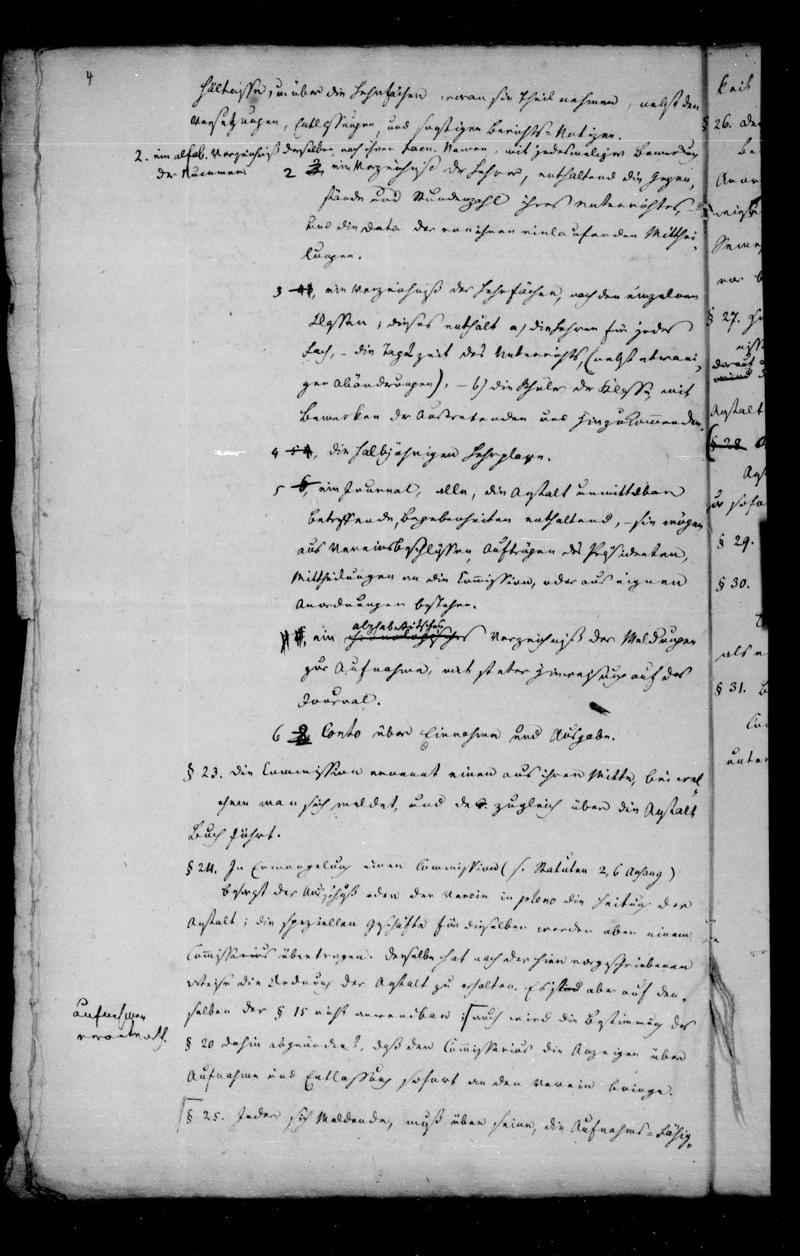 4
hältnisse, u. über die Lehrfächer, woran sie Theil nehmen, nebst den
Versetzungen, Entlassungen, und sonstigen Berichts-Notizen.
2. ein alfab. Verzeichniß derselben, nach ihren Namen, mit jedesmaliger Bemerkung
der Nummern
2 3, ein Verzeichniß der Lehrer, enthaltend die Gegen-
stände und Stundenzahl ihres Unterrichtes, –
und die Data der von ihnen einlaufenden Mitthei-
lungen.
3 4, ein Verzeichniß der Lehrfächer, nach den einzelnen
Classen; dieses enthält a) die Lehrer für jedes
Fach, – die Tageszeit des Unterrichts, (nebst etwani-
gen Abänderungen), – b) die Schüler der Klasse, mit
Bemerken der Austretenden und Hinzukommenden.
4 5, die halbjährigen Lehrplane.
5 6, ein Journal, alle, die Anstalt unmittelbar
betreffende, Begebenheiten enthaltend, – sie mögen
aus Vereinsbeschlüssen, Aufträgen des Präsidenten,
Mittheilungen an die Commission, oder aus eignen
Anordnungen bestehen.
alphabetisches
ein chronologisches Verzeichniß der Meldungen
zur Aufnahme, mit steter Hinweisung auf das
Journal.
6 8 Conto über Einnahme und Ausgabe.
§ 23. Die Commission ernennt einen aus ihrer Mitte, bei wel-
chem man sich meldet, und der zugleich über die Anstalt
Buch führt.
§ 24. In Ermangelung einer Commission (s. Statuten 2, 6 Anhang)
besorgt der Ausschuß oder der Verein in pleno die Leitung der
Anstalt; die speziellen Geschäfte für dieselben werden aber einem
Commissarius übertragen. Derselbe hat nach der hier vorgeschriebenen
Weise die Ordnung der Anstalt zu erhalten. Es ist aber auf den-
selben der § 15 nicht anwendbar; auch wird die Bestimmung des
§ 20 dahin abgeändert, daß der Commissarius die Anzeigen über
Aufnahme und Entlassung sofort an den Verein bringe.
§ 25. Jeder sich Meldende, muß über seine, die Aufnahms-Fähig-
aufnehmen
keit
§ 26.
§ 27.
darauf
Anstalt
§ 28
§ 29.
§ 30.
§ 31.
unter